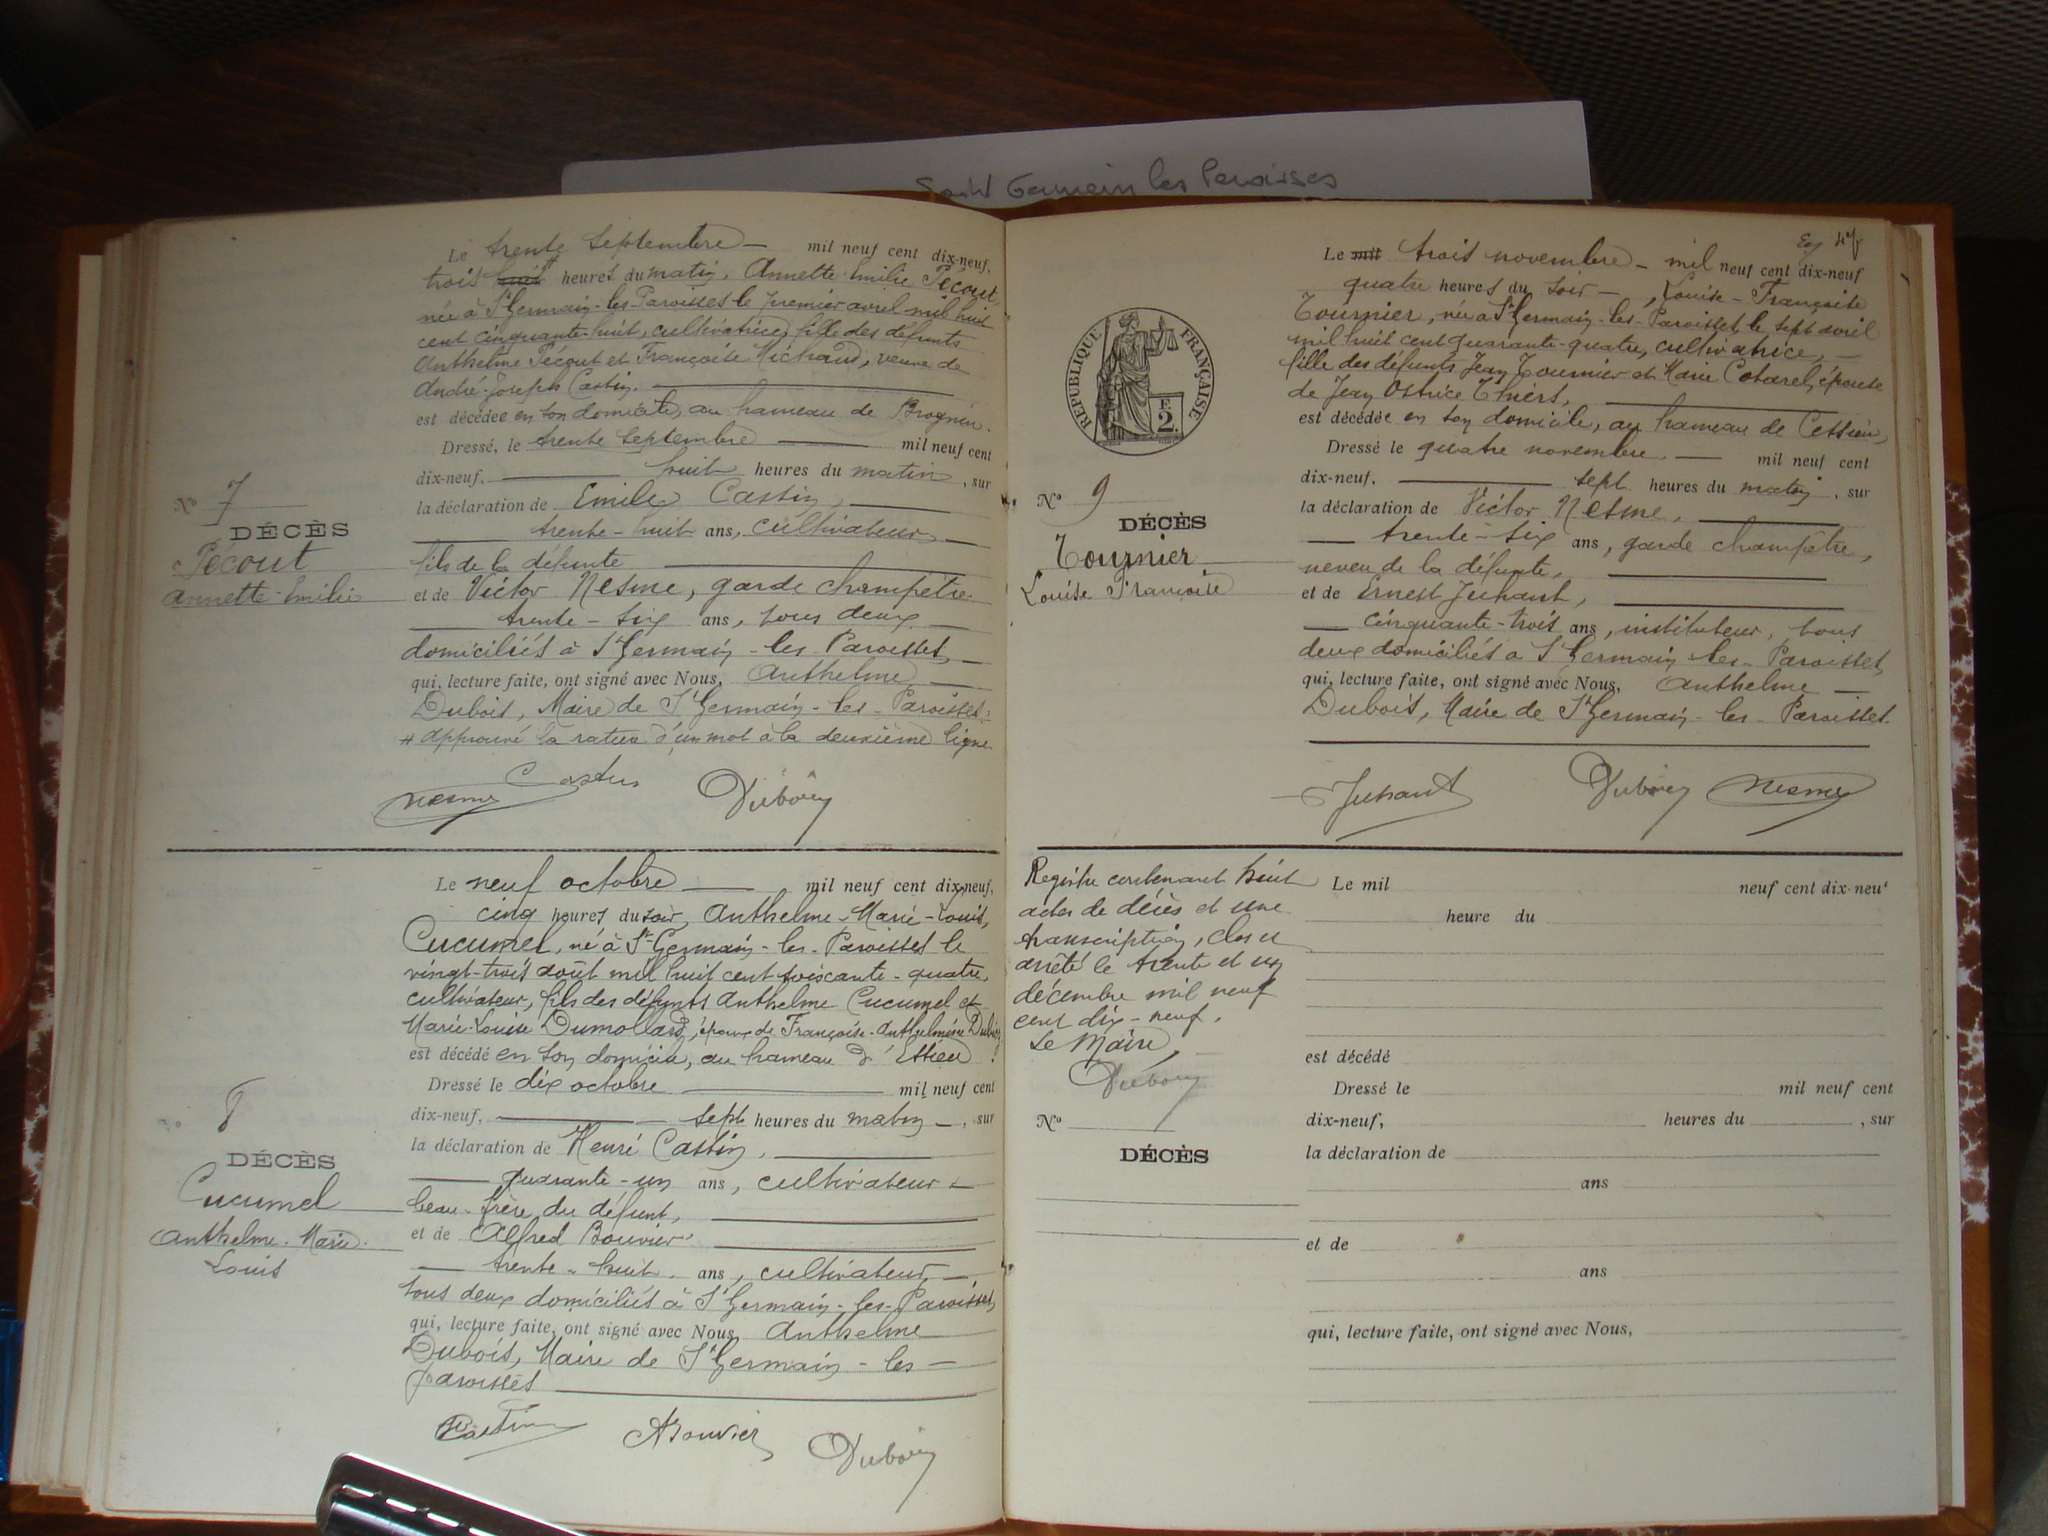 Saint Germain les Paroisses
Le trente septembre — mil neuf cent dix-neuf,
trois huit heures du matin, Annette-Emilie Pécout
née à St Germain-les-Paroisses le premier avril mil huit
cent cinquante-huit, cultivatrice, fille des défunts
Anthelme Pécout et Françoise Michaud, veuve de
André-Joseph Castin.
est décédée en son domicile, au hameau de Brognin.
Dressé, le trente septembre — mil neuf cent
dix-neuf, — huit heures du matin, sur
la déclaration de Emile Castin,
trente-huit ans, cultivateur
fils de la défunte
et de Victor Nesme, garde champêtre
trente-six ans, tous deux
domiciliés à St Germain-les-Paroisses,
qui, lecture faite, ont signé avec Nous, Anthelme
Dubois, Maire de St Germain-les-Paroisses.
# approuvé la rature d'un mot à la deuxième ligne
Castin
Nesme Dubois
No 7
DÉCÈS
Pécout
Annette-Emilie
Le neuf octobre — mil neuf cent dix-neuf,
cinq heures du soir, Anthelme-Marie-Louis,
Cucumel, né à St Germain-les-Paroisses le
vingt-trois août mil huit cent soixante-quatre,
cultivateur, fils des défunts Anthelme Cucumel et
Marie-Louise Dumollard, époux de Françoise-Anthelmine Dubois
est décédé en son domicile, au hameau d'Essieu.
Dressé le dix octobre — mil neuf cent
dix-neuf, — sept heures du matin —, sur
la déclaration de Henri Castin,
quarante-un ans, cultivateur
beau-frère du défunt,
et de Alfred Bouvier
trente-huit ans, cultivateur,
tous deux domiciliés à St Germain-les-Paroisses,
qui, lecture faite, ont signé avec Nous, Anthelme
Dubois, Maire de St Germain-les-
Paroisses
Castin ABouvier Dubois
No 8
DÉCÈS
Cucumel
Anthelme-Marie-
Louis
Le mil trois novembre — mil neuf cent dix-neuf
quatre heures du soir —, Louise-Françoise
Tournier, née à St Germain-les-Paroisses, le sept avril
mil huit cent quarante-quatre, cultivatrice, —
fille des défunts Jean Tournier et Marie Cotarel, épouse
de Jean Ostrice Thiers,
est décédée en son domicile, au hameau de Cessieu,
Dressé le quatre novembre. — mil neuf cent
dix-neuf, — sept heures du matin, sur
la déclaration de Victor Nesme,
— trente-six ans, garde champêtre,
neveu de la défunte,
et de Ernest Juhant,
— cinquante-trois ans, instituteur, tous
deux domiciliés à St Germain-les-Paroisses,
qui, lecture faite, ont signé avec Nous, Anthelme —
Dubois, Maire de St Germain-les-Paroisses.
Juhant Dubois Nesme
RÉPUBLIQUE FRANÇAISE
F.
2.
No 9
DÉCÈS
Tournier
Louise Françoise
Registre contenant huit
actes de décès et une
transcription, clos et
arrêté le trente et un
décembre mil neuf
cent dix-neuf.
Le Maire,
Dubois
No
DÉCÈS
Le mil neuf cent dix-neuf
heure du
est décédé
Dressé le mil neuf cent
dix-neuf, heures du , sur
la déclaration de
ans
et de
ans
qui, lecture faite, ont signé avec Nous,